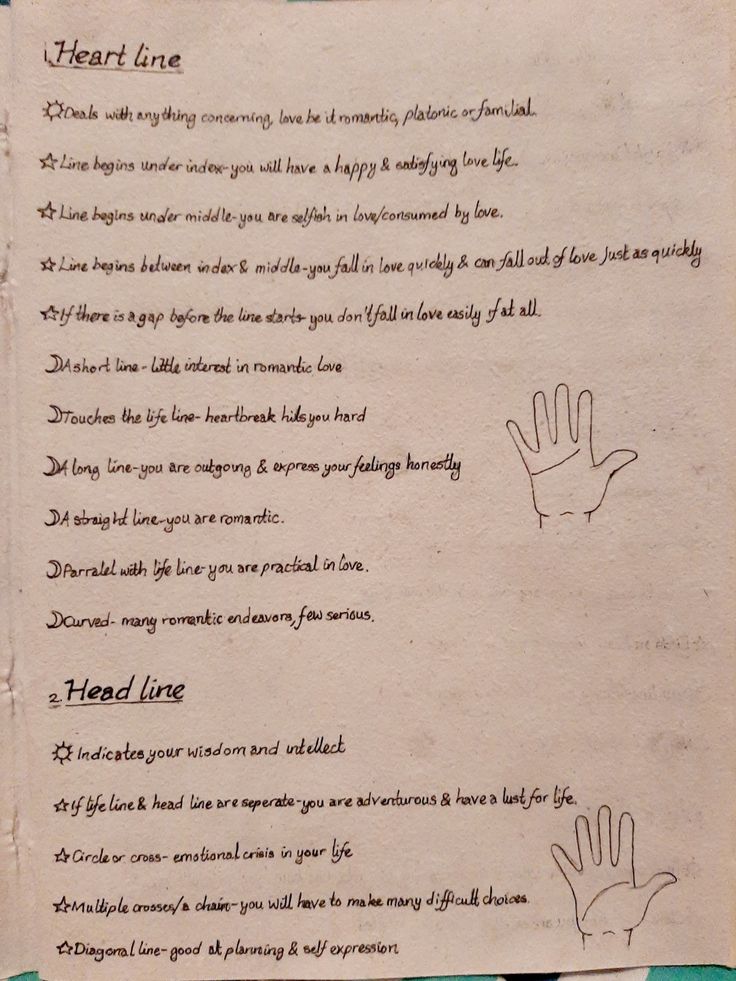 1. Heart line
☼Deals with anything concerning, love be it romantic, platonic or familial.
☆Line begins under index-you will have a happy & satisfying love life.
☆Line begins under middle-you are selfish in love/consumed by love.
☆Line begins between index & middle-you fall in love quickly & can fall out of love just as quickly
☆If there is a gap before the line starts- you don't fall in love easily if at all.
☽A short line- little interest in romantic love
☽Touches the life line- heartbreak hits you hard
☽A long line-you are outgoing & express your feelings honestly
☽A straight line-you are romantic.
☽Parralel with life line-you are practical in love.
☽Curved- many romantic endeavors, few serious.
2. Head line
☼ Indicates your wisdom and intellect
☆If life line & head line are seperate-you are adventurous & have a lust for life.
☆Circle or cross- emotional crisis in your life
☆Multiple crosses/a chain-you will have to make many difficult choices.
☆Diagonal line-good at planning & self expression